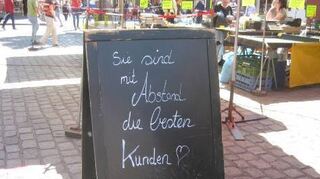 Sie sind
mit
Abstand
die besten
Kunden ♡